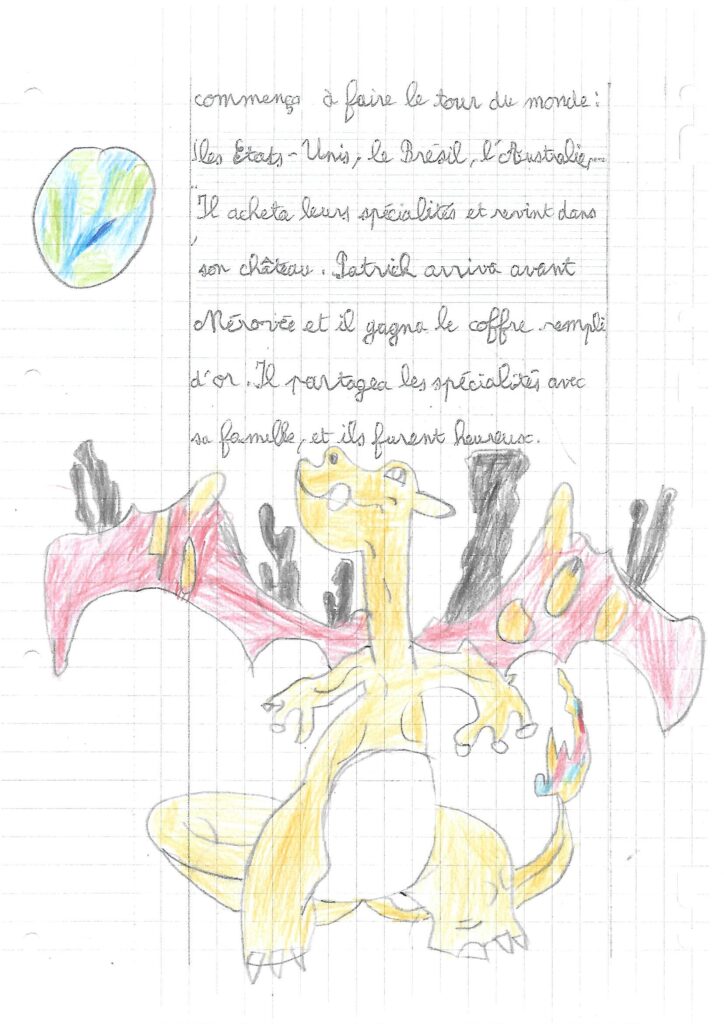 commença à faire le tour du monde :
les Etats-Unis, le Brésil, l'Australie,...
Il acheta leurs spécialités et revint dans
son château. Patrick arriva avant
Mérovée et il gagna le coffre rempli
d'or. Il partagea les spécialités avec
sa famille, et ils furent heureux.